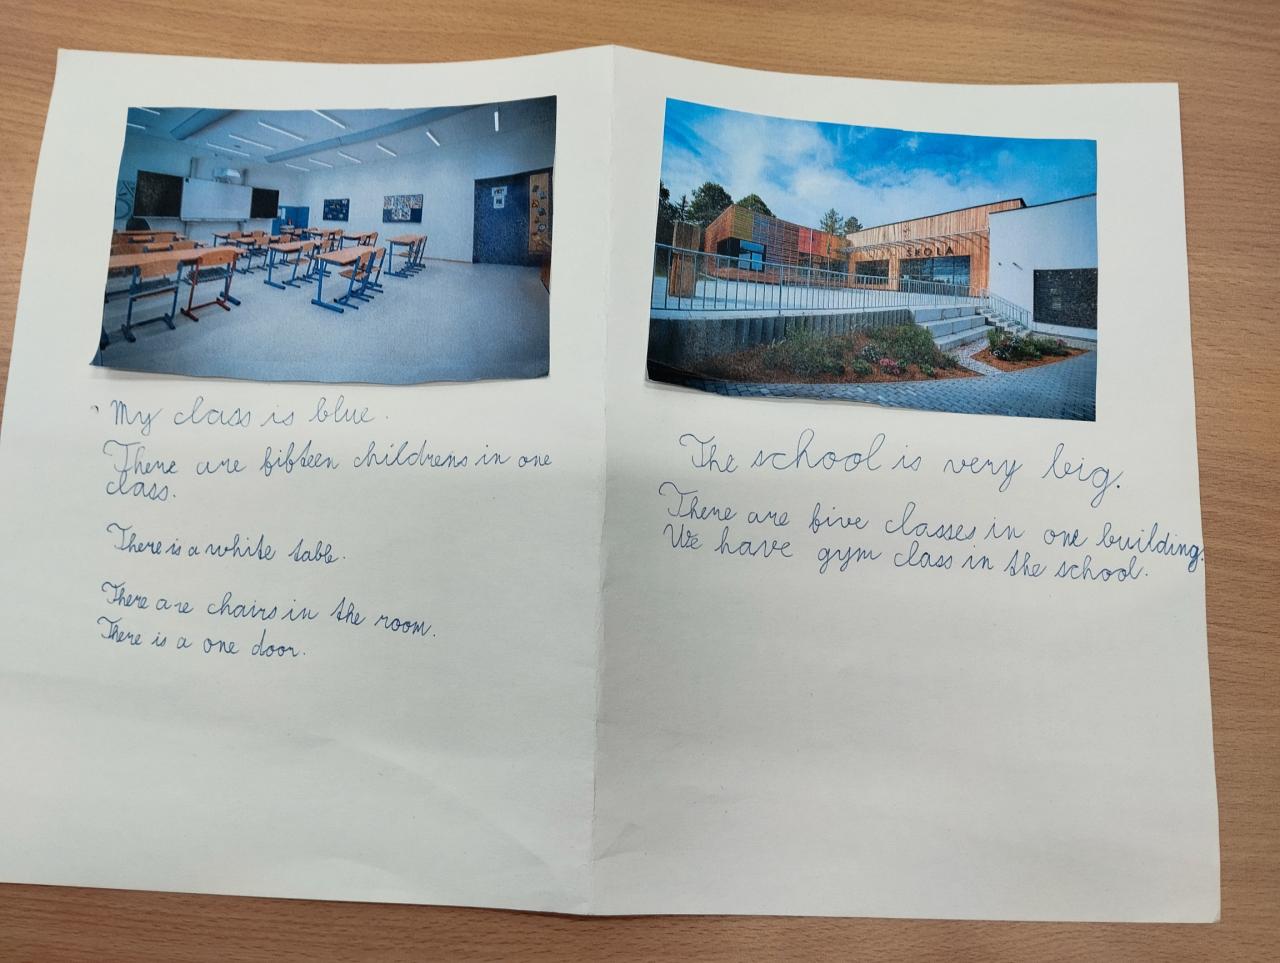 My class is blue.
There are fifteen childrens in one
class.
There is a white table.
There are chairs in the room.
There is a one door.
ŠKOLA
The school is very big.
There are five classes in one building.
We have gym class in the school.